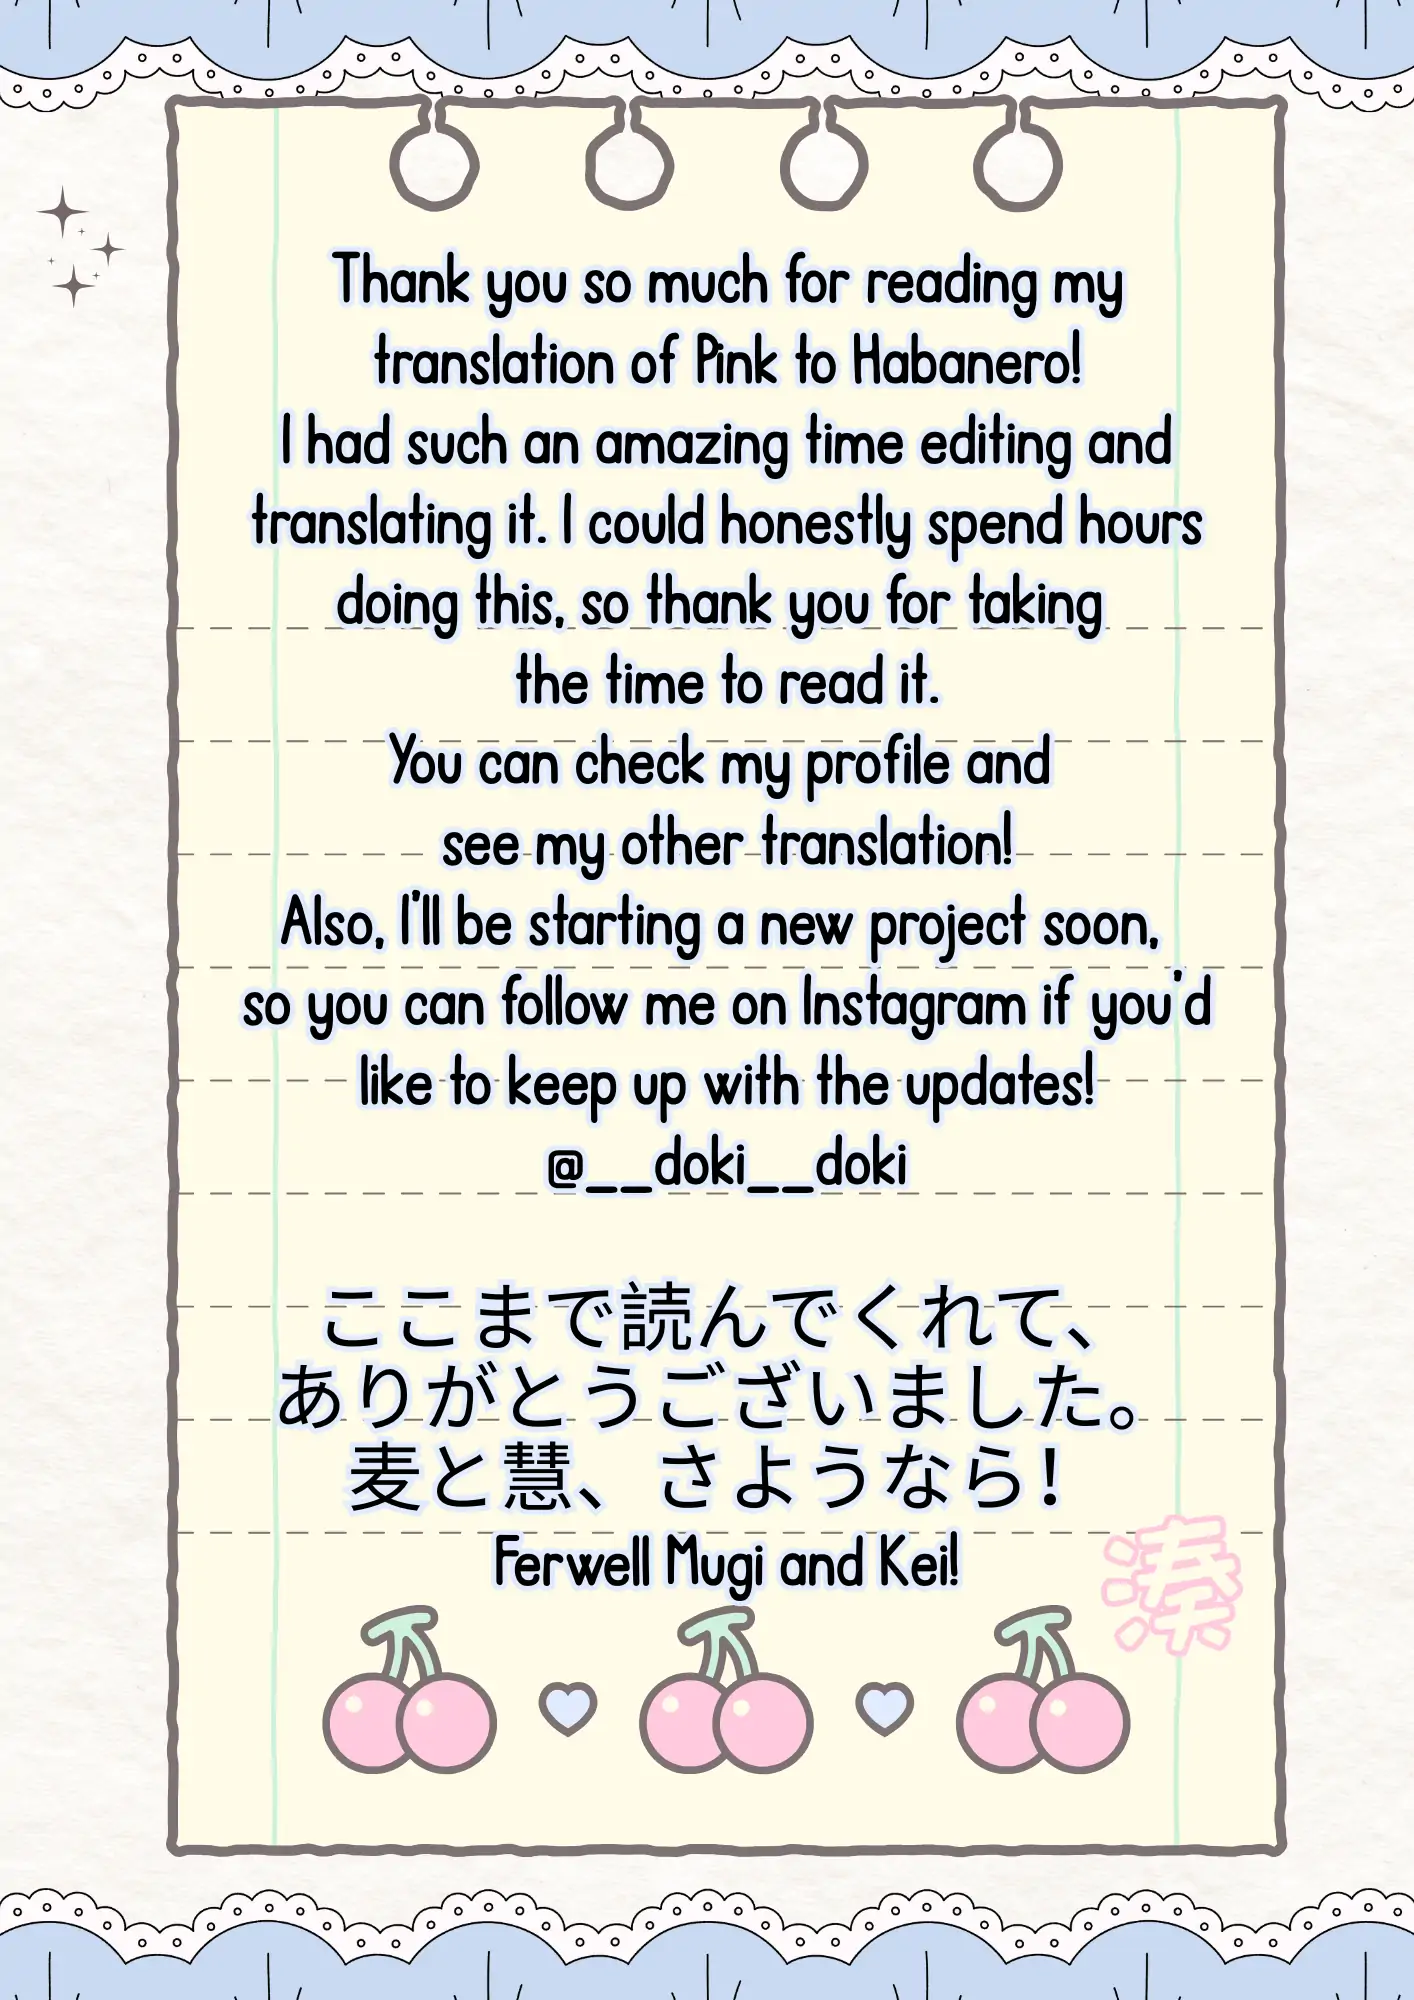 Thank you so much for reading my
translation of Pink to Habanero!
I had such an amazing time editing and
translating it. I could honestly spend hours
doing this, so thank you for taking
the time to read it.
You can check my profile and
see my other translation!
Also, I'll be starting a new project soon,
so you can follow me on Instagram if you'd
like to keep up with the updates!
@__doki__doki
ここまで読んでくれて、
ありがとうございました。
麦と慧、さようなら！
Ferwell Mugi and Kei!
湊